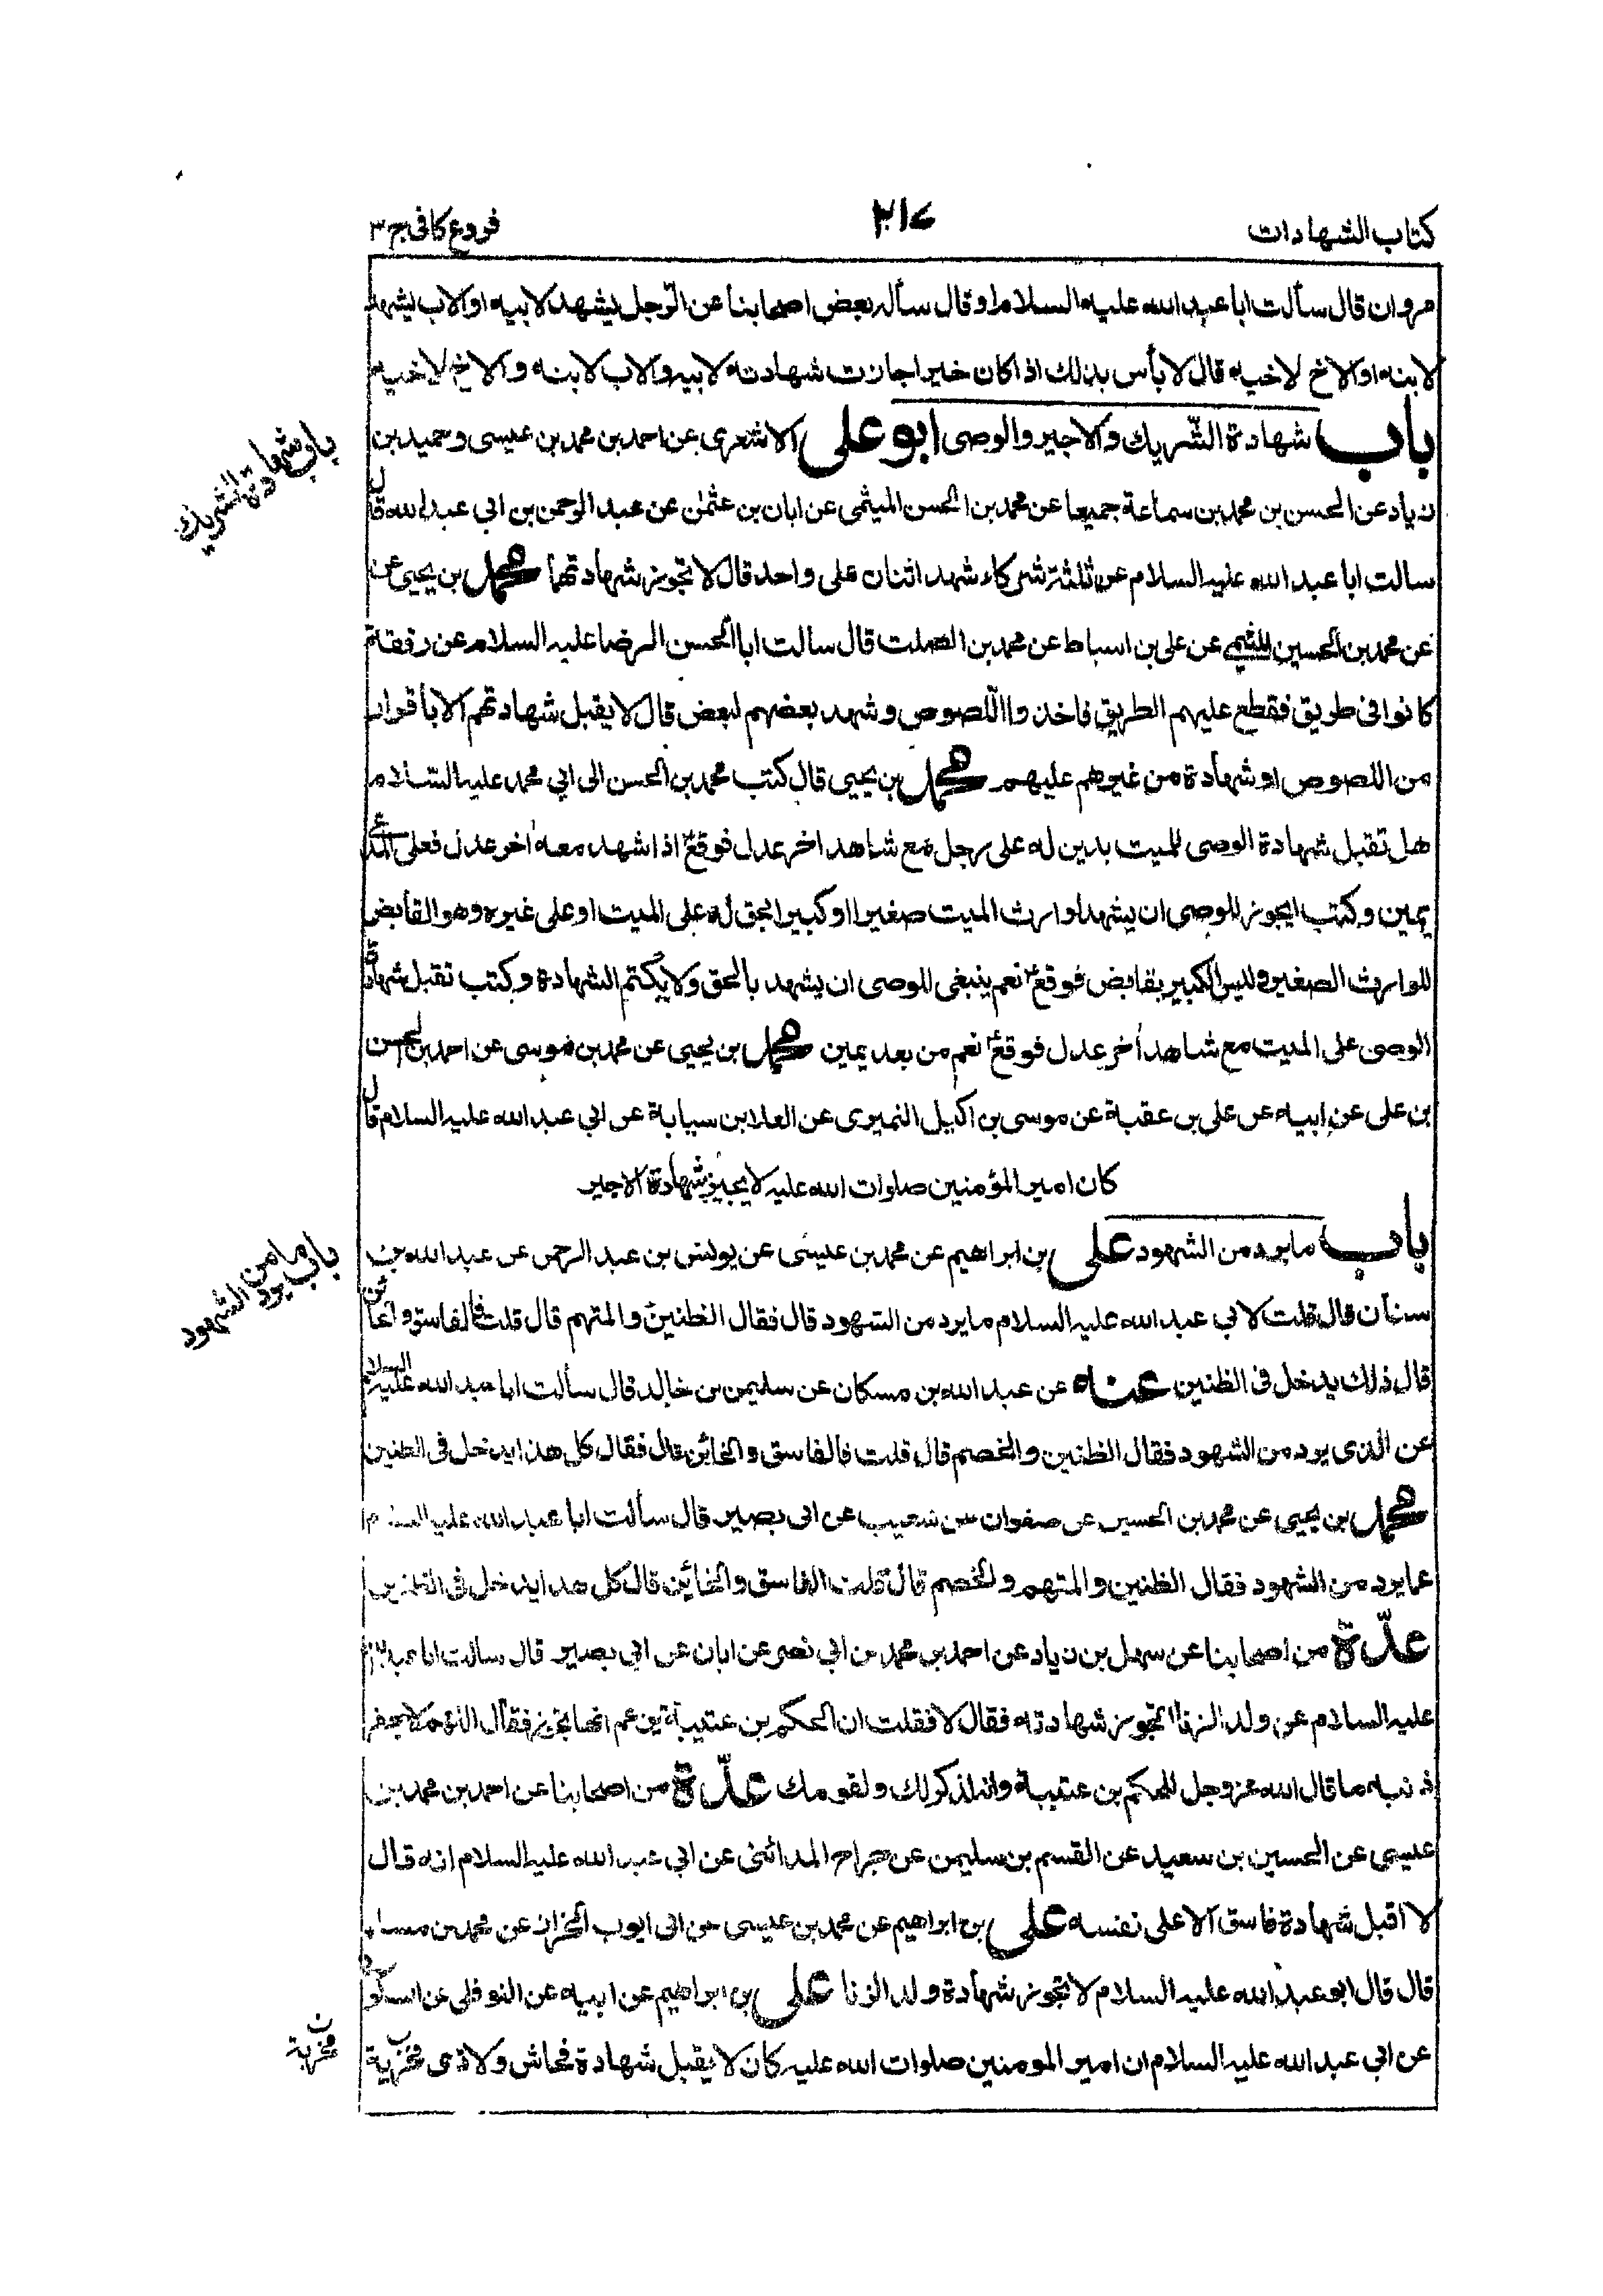 كتاب الشهادات
٢١٤
فروع كافى ج ٣
مروان قال سألت ابا عبد الله عليه السلام او قال سأله بعض اصحابنا عن الرّجل يشهد لابيه او الاب يشهد
لابنه او الاخ لاخيه قال لا بأس بذلك اذا كان خيرا جازت شهادته لابيه والاب لابنه والاخ لاخيه
باب شهادة الشّريك والاجير والوصى ابو على الاشعرى عن احمد بن محمد بن عيسى وحميد بن
زياد عن الحسن بن محمد بن سماعة جميعا عن محمد بن الحسن الميثمى عن ابان بن عثمٰن عن عبد الرحمن بن ابي عبد الله قال
سالت ابا عبد الله عليه السلام عن ثلثة شركاء شهد اثنان على واحد قال لا تجوز شهادتهما محمد بن يحيى عن
عن محمد بن الحسين الميثمى عن على بن اسباط عن محمد بن الصلت قال سالت ابا الحسن الرضا عليه السلام عن رفقة
كانوا فى طريق فقطع عليهم الطريق فاخذوا اللّصوص وشهد بعضهم لبعض قال لا يقبل شهادتهم الا بأقرار
من اللصوص او شهادة من غيرهم عليهم محمد بن يحيى قال كتب محمد بن الحسن الى ابي محمد عليه السّلام
هل تقبل شهادة الوصى للميت بدين له على رجل مع شاهد اخر عدل فوقعؑ اذا شهد معه اخر عدل فعلى المدعى
يمين وكتب ايجوز للوصى ان يشهد لوارث الميت صغيرا او كبيرا بحق له على الميت او على غيره وهو القابض
للوارث الصغير وليس الكبير بقابض فوقعؑ نعم ينبغى للوصى ان يشهد بالحق ولا يكتم الشهادة وكتب تقبل شهادة
الوصى على الميت مع شاهد أخر عدل فوقعؑ نعم من بعد يمين محمد بن يحيى عن محمد بن موسى عن احمد بن الحسن
بن على عن ابيه عن على بن عقبة عن موسى بن اكيل النميرى عن العلا بن سيابة عن ابي عبد الله عليه السلام قال
كان امير المؤمنين صلوات الله عليه لا يجيز شهادة الاجير
باب ما يرد من الشهود على بن ابراهيم عن محمد بن عيسى عن يونس بن عبد الرحمن عن عبد الله بن
سنان قال قلت لابي عبد الله عليه السلام ما يرد من الشهود قال فقال الظنين والمتهم قال قلت فالفاسق والخائن
قال ذلك يدخل فى الظنين عنه عن عبد الله بن مسكان عن سليمن بن خالد قال سألت ابا عبد الله عليه السلام
عن الذى يرد من الشهود فقال الظنين والخصم قال قلت فالفاسق والخائن قال فقال كل هذا يدخل فى الظنين
محمد بن يحيى عن محمد بن الحسين عن صفوان عن شعيب عن ابى بصير قال سألت ابا عبد الله عليه السلام
عما يرد من الشهود فقال الظنين والمتهم والخصم قال قلت الفاسق والخائن قال كل هذا يدخل فى الظنين
عدّة من اصحابنا عن سهل بن زياد عن احمد بن محمد بن ابي نصر عن ابان عن ابي بصير قال سالت ابا عبد الله
عليه السلام عن ولد الزنا اتجوز شهادته فقال لا فقلت ان الحكم بن عتيبة يزعم انها تجوز فقال اللّهم لا تغفر
ذنبه ما قال الله عز وجل للحكم بن عتيبة وانه لذكر لك ولقومك عدّة من اصحابنا عن احمد بن محمد بن
عيسى عن الحسين بن سعيد عن القسم بن سليمن عن جراح المدائنى عن ابي عبد الله عليه السلام انه قال
لا اقبل شهادة فاسق الا على نفسه على بن ابراهيم عن محمد بن عيسى عن ابى ايوب الخزاز عن محمد بن مسلم
قال قال ابو عبد الله عليه السلام لا تجوز شهادة ولد الزنا على بن ابراهيم عن ابيه عن النوفلى عن السكونى
عن ابي عبد الله عليه السلام ان امير المومنين صلوات الله عليه كان لا يقبل شهادة فحاش ولا ذى مخزية
باب شهادة الشريك
باب ما يرد من الشهود